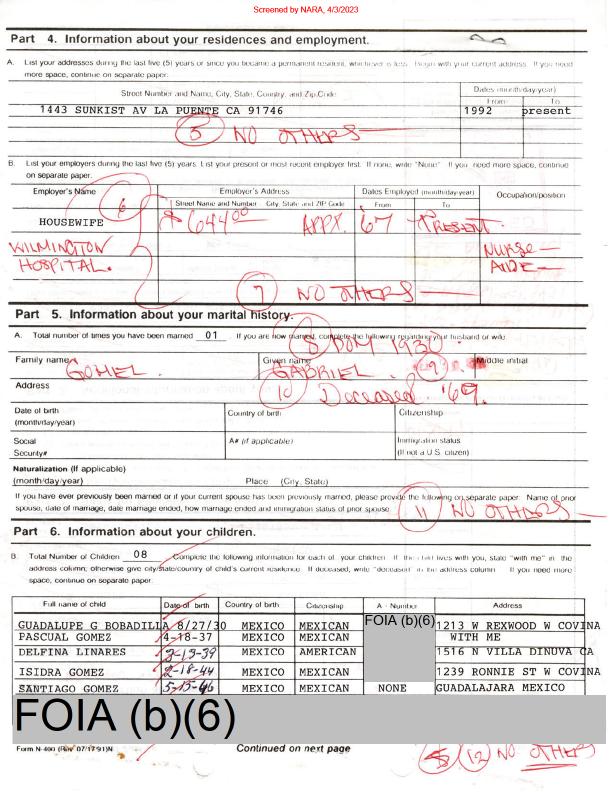 Screened by NARA, 4/3/2023
Part 4. Information about your residences and employment.
A. List your addresses during the last five (5) years or since you became a permanent resident, whichever is less. Begin with your current address. If you need
more space, continue on separate paper.
Street Number and Name, City, State, Country, and Zip Code
Dates (month/day/year)
From To
1443 SUNKIST AV LA PUENTE CA 91746 1992 present
5 NO OTHERS
B. List your employers during the last five (5) years. List your present or most recent employer first. If none, write "None". If you need more space, continue
on separate paper.
Employer's Name Employer's Address Dates Employed (month/day/year) Occupation/position
Street Name and Number City, State and ZIP Code From To
6
HOUSEWIFE 644.00 APPX. 67 PRESENT
WILMINGTON NURSE
HOSPITAL. AIDE
7 NO OTHERS
Part 5. Information about your marital history.
A. Total number of times you have been married 01 If you are now married, complete the following regarding your husband or wife.
8 DOM 1930.
Family name Given name Middle initial
GOMEZ. GABRIEL. 9
Address 10 Deceased '69.
Date of birth Country of birth Citizenship
(month/day/year)
Social A# (if applicable) Immigration status
Security# (If not a U.S. citizen)
Naturalization (If applicable)
(month/day/year) Place (City, State)
If you have ever previously been married or if your current spouse has been previously married, please provide the following on separate paper: Name of prior
spouse, date of marriage, date marriage ended, how marriage ended and immigration status of prior spouse.
11 NO OTHERS
Part 6. Information about your children.
B. Total Number of Children 08 Complete the following information for each of your children. If the child lives with you, state "with me" in the
address column; otherwise give city/state/country of child's current residence. If deceased, write "deceased" in the address column. If you need more
space, continue on separate paper.
Full name of child Date of birth Country of birth Citizenship A - Number Address
GUADALUPE G BOBADILLA 8/27/30 MEXICO MEXICAN FOIA (b)(6) 1213 W REXWOOD W COVINA
PASCUAL GOMEZ 4-18-37 MEXICO MEXICAN WITH ME
DELFINA LINARES 3-13-39 MEXICO AMERICAN 1516 N VILLA DINUVA CA
ISIDRA GOMEZ 2-18-44 MEXICO MEXICAN 1239 RONNIE ST W COVINA
SANTIAGO GOMEZ 5-15-46 MEXICO MEXICAN NONE GUADALAJARA MEXICO
FOIA (b)(6)
Form N-400 (Rev. 07/17/91)N Continued on next page
12 NO OTHERS